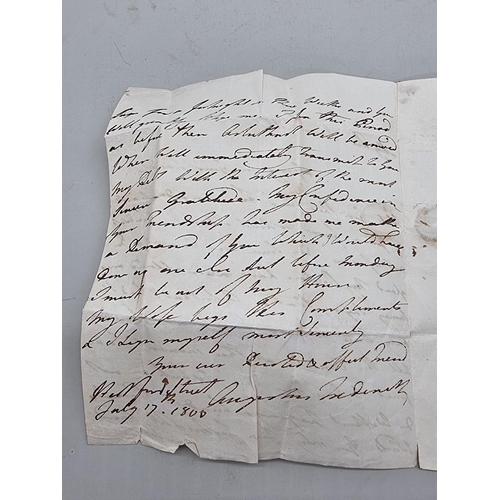 for a fortnight or three Weeks and you
Will greatly
as before then Will be arrived
When Will immediately transmit to you
My Debt With the Interest of the most
Sincere Gratitude. My Confidence in
your friendship has made me make
a Demand of you Which I Would have
Done no one else but before Monday
I must be out of My House
My Wife begs Her Compliments
& I Sign myself most Sincerely
Your ever Devoted & affect friend
Hertford Street Augustus Frederick
July 17th. 1806